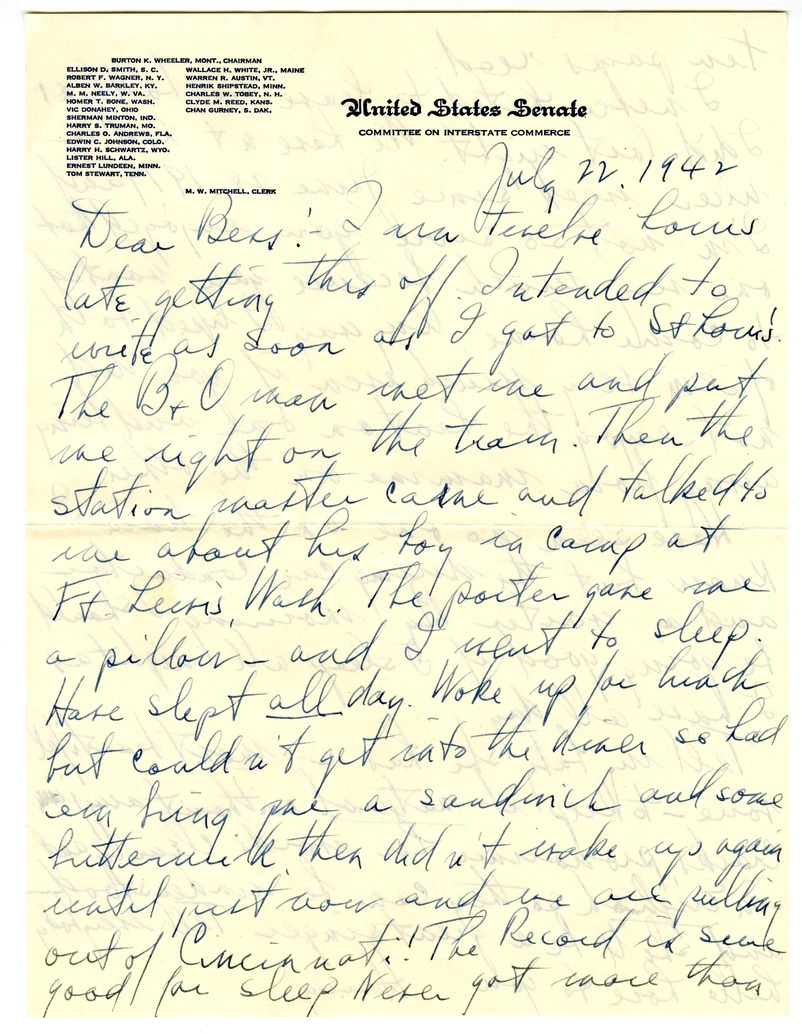 BURTON K. WHEELER, MONT., CHAIRMAN
ELLISON D. SMITH, S. C.
ROBERT F. WAGNER, N. Y.
ALBEN W. BARKLEY, KY.
M. M. NEELY, W. VA.
HOMER T. BONE, WASH.
VIC DONAHEY, OHIO
SHERMAN MINTON, IND.
HARRY S. TRUMAN, MO.
CHARLES O. ANDREWS, FLA.
EDWIN C. JOHNSON, COLO.
HARRY H. SCHWARTZ, WYO.
LISTER HILL, ALA.
ERNEST LUNDEEN, MINN.
TOM STEWART, TENN.
WALLACE H. WHITE, JR., MAINE
WARREN R. AUSTIN, VT.
HENRIK SHIPSTEAD, MINN.
CHARLES W. TOBEY, N. H.
CLYDE M. REED, KANS.
CHAN GURNEY, S. DAK.
M. W. MITCHELL, CLERK
United States Senate
COMMITTEE ON INTERSTATE COMMERCE
July 22, 1942
Dear Bess:- I am twelve hours
late getting this off. Intended to
write as soon as I got to St Louis.
The B + O man met me and put
me right on the train. Then the
station master came and talked to
me about his boy in camp at
Ft Lewis, Wash. The porter gave me
a pillow - and I went to sleep.
Have slept all day. Woke up for lunch
but couldn't get into the diner so had
em bring me a sandwich and some
buttermilk then didn't wake up again
until just now and we are pulling
out of Cincinnati! The Record is sure
good for sleep Never got more than